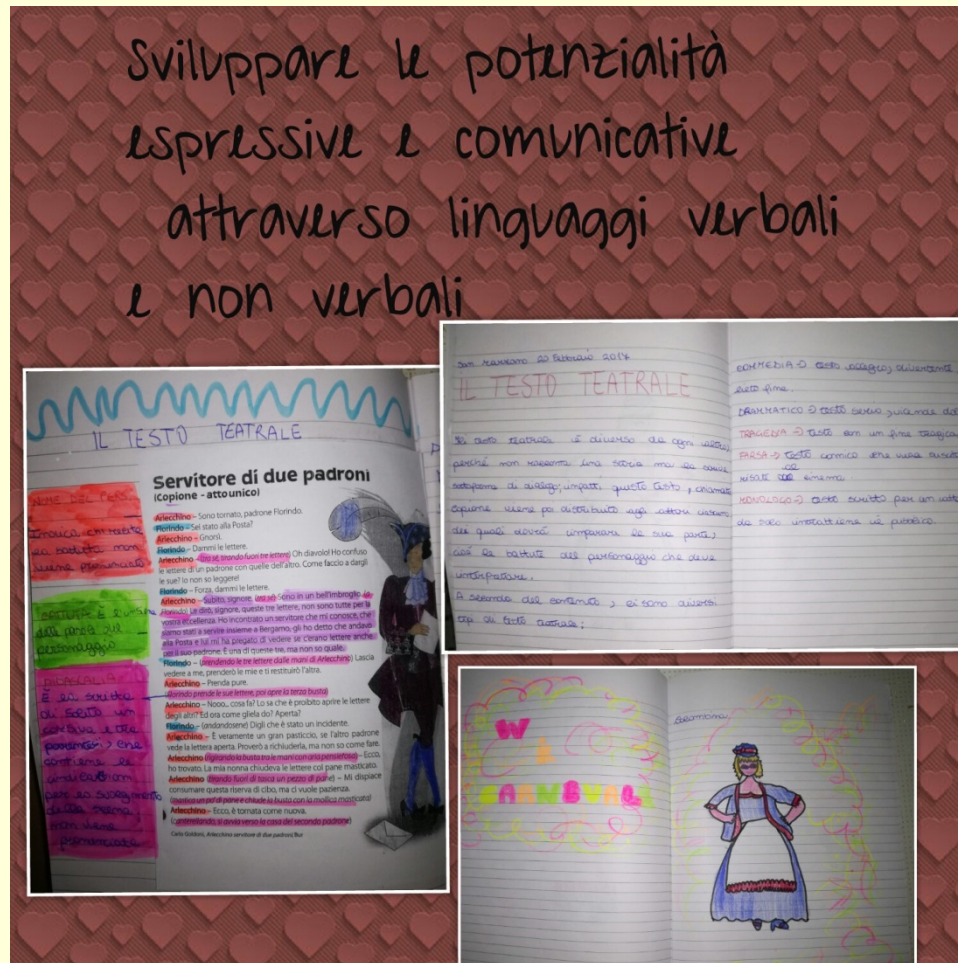 Sviluppare le potenzialità
espressive e comunicative
attraverso linguaggi verbali
e non verbali
IL TESTO TEATRALE
NOME DEL
Indica chi recita
la battuta non
viene pronunciato
BATTUTA: È
delle parole del
personaggio
DIDASCALIA:
È la scritta
di solito in
corsivo e tra
parentesi, che
contiene le
indicazioni
per lo svolgimento
della scena,
non viene
pronunciata
Servitore di due padroni
(Copione - atto unico)
Arlecchino – Sono tornato, padrone Florindo.
Florindo – Sei stato alla Posta?
Arlecchino – Gnorsì.
Florindo – Dammi le lettere.
Arlecchino – (tra sé, tirando fuori tre lettere) Oh diavolo! Ho confuso
le lettere di un padrone con quelle dell'altro. Come faccio a dargli
le sue? Io non so leggere!
Florindo – Forza, dammi le lettere.
Arlecchino – Subito, signore. (tra sé) Sono in un bell'imbroglio. (a
Florindo) Le dirò, signore, queste tre lettere, non sono tutte per la
vostra eccellenza. Ho incontrato un servitore che mi conosce, che
siamo stati a servire insieme a Bergamo, gli ho detto che andavo
alla Posta e lui mi ha pregato di vedere se c'erano lettere anche
per il suo padrone. È una di queste tre, ma non so quale.
Florindo – (prendendo le tre lettere dalle mani di Arlecchino) Lascia
vedere a me, prenderò le mie e ti restituirò l'altra.
Arlecchino – Prenda pure.
(Florindo prende le sue lettere, poi apre la terza busta)
Arlecchino – Nooo... cosa fa? Lo sa che è proibito aprire le lettere
degli altri? Ed ora come gliela do? Aperta?
Florindo – (andandosene) Digli che è stato un incidente.
Arlecchino – È veramente un gran pasticcio, se l'altro padrone
vede la lettera aperta. Proverò a richiuderla, ma non so come fare.
Arlecchino (rigirando la busta tra le mani con aria pensierosa) – Ecco,
ho trovato. La mia nonna chiudeva le lettere col pane masticato.
Arlecchino (tirando fuori di tasca un pezzo di pane) – Mi dispiace
consumare questa riserva di cibo, ma ci vuole pazienza.
(mastica un po' di pane e chiude la busta con la mollica masticata)
Arlecchino – Ecco, è tornata come nuova.
(contemplando, si avvia verso la casa del secondo padrone)
Carlo Goldoni, Arlecchino servitore di due padroni, Bur
San Marzano 20 Febbraio 2014
IL TESTO TEATRALE
Il testo teatrale è diverso da ogni altro
perché non racconta una storia ma la
sottoforma di dialogo; infatti questo testo, chiamato
copione viene poi distribuito agli attori ciascuno
dei quali dovrà imparare la sua parte,
cioè le battute del personaggio che deve
interpretare.
A seconda del contenuto, ci sono diversi
tipi di testo teatrale:
COMMEDIA → testo allegro, divertente
lieto fine.
DRAMMATICO → testo serio,
TRAGEDIA → testo con un fine tragica
FARSA → testo comico che vuole
risate
MONOLOGO → testo scritto per un
da solo intrattiene il pubblico.
W
IL
CARNEVALE
Colombina